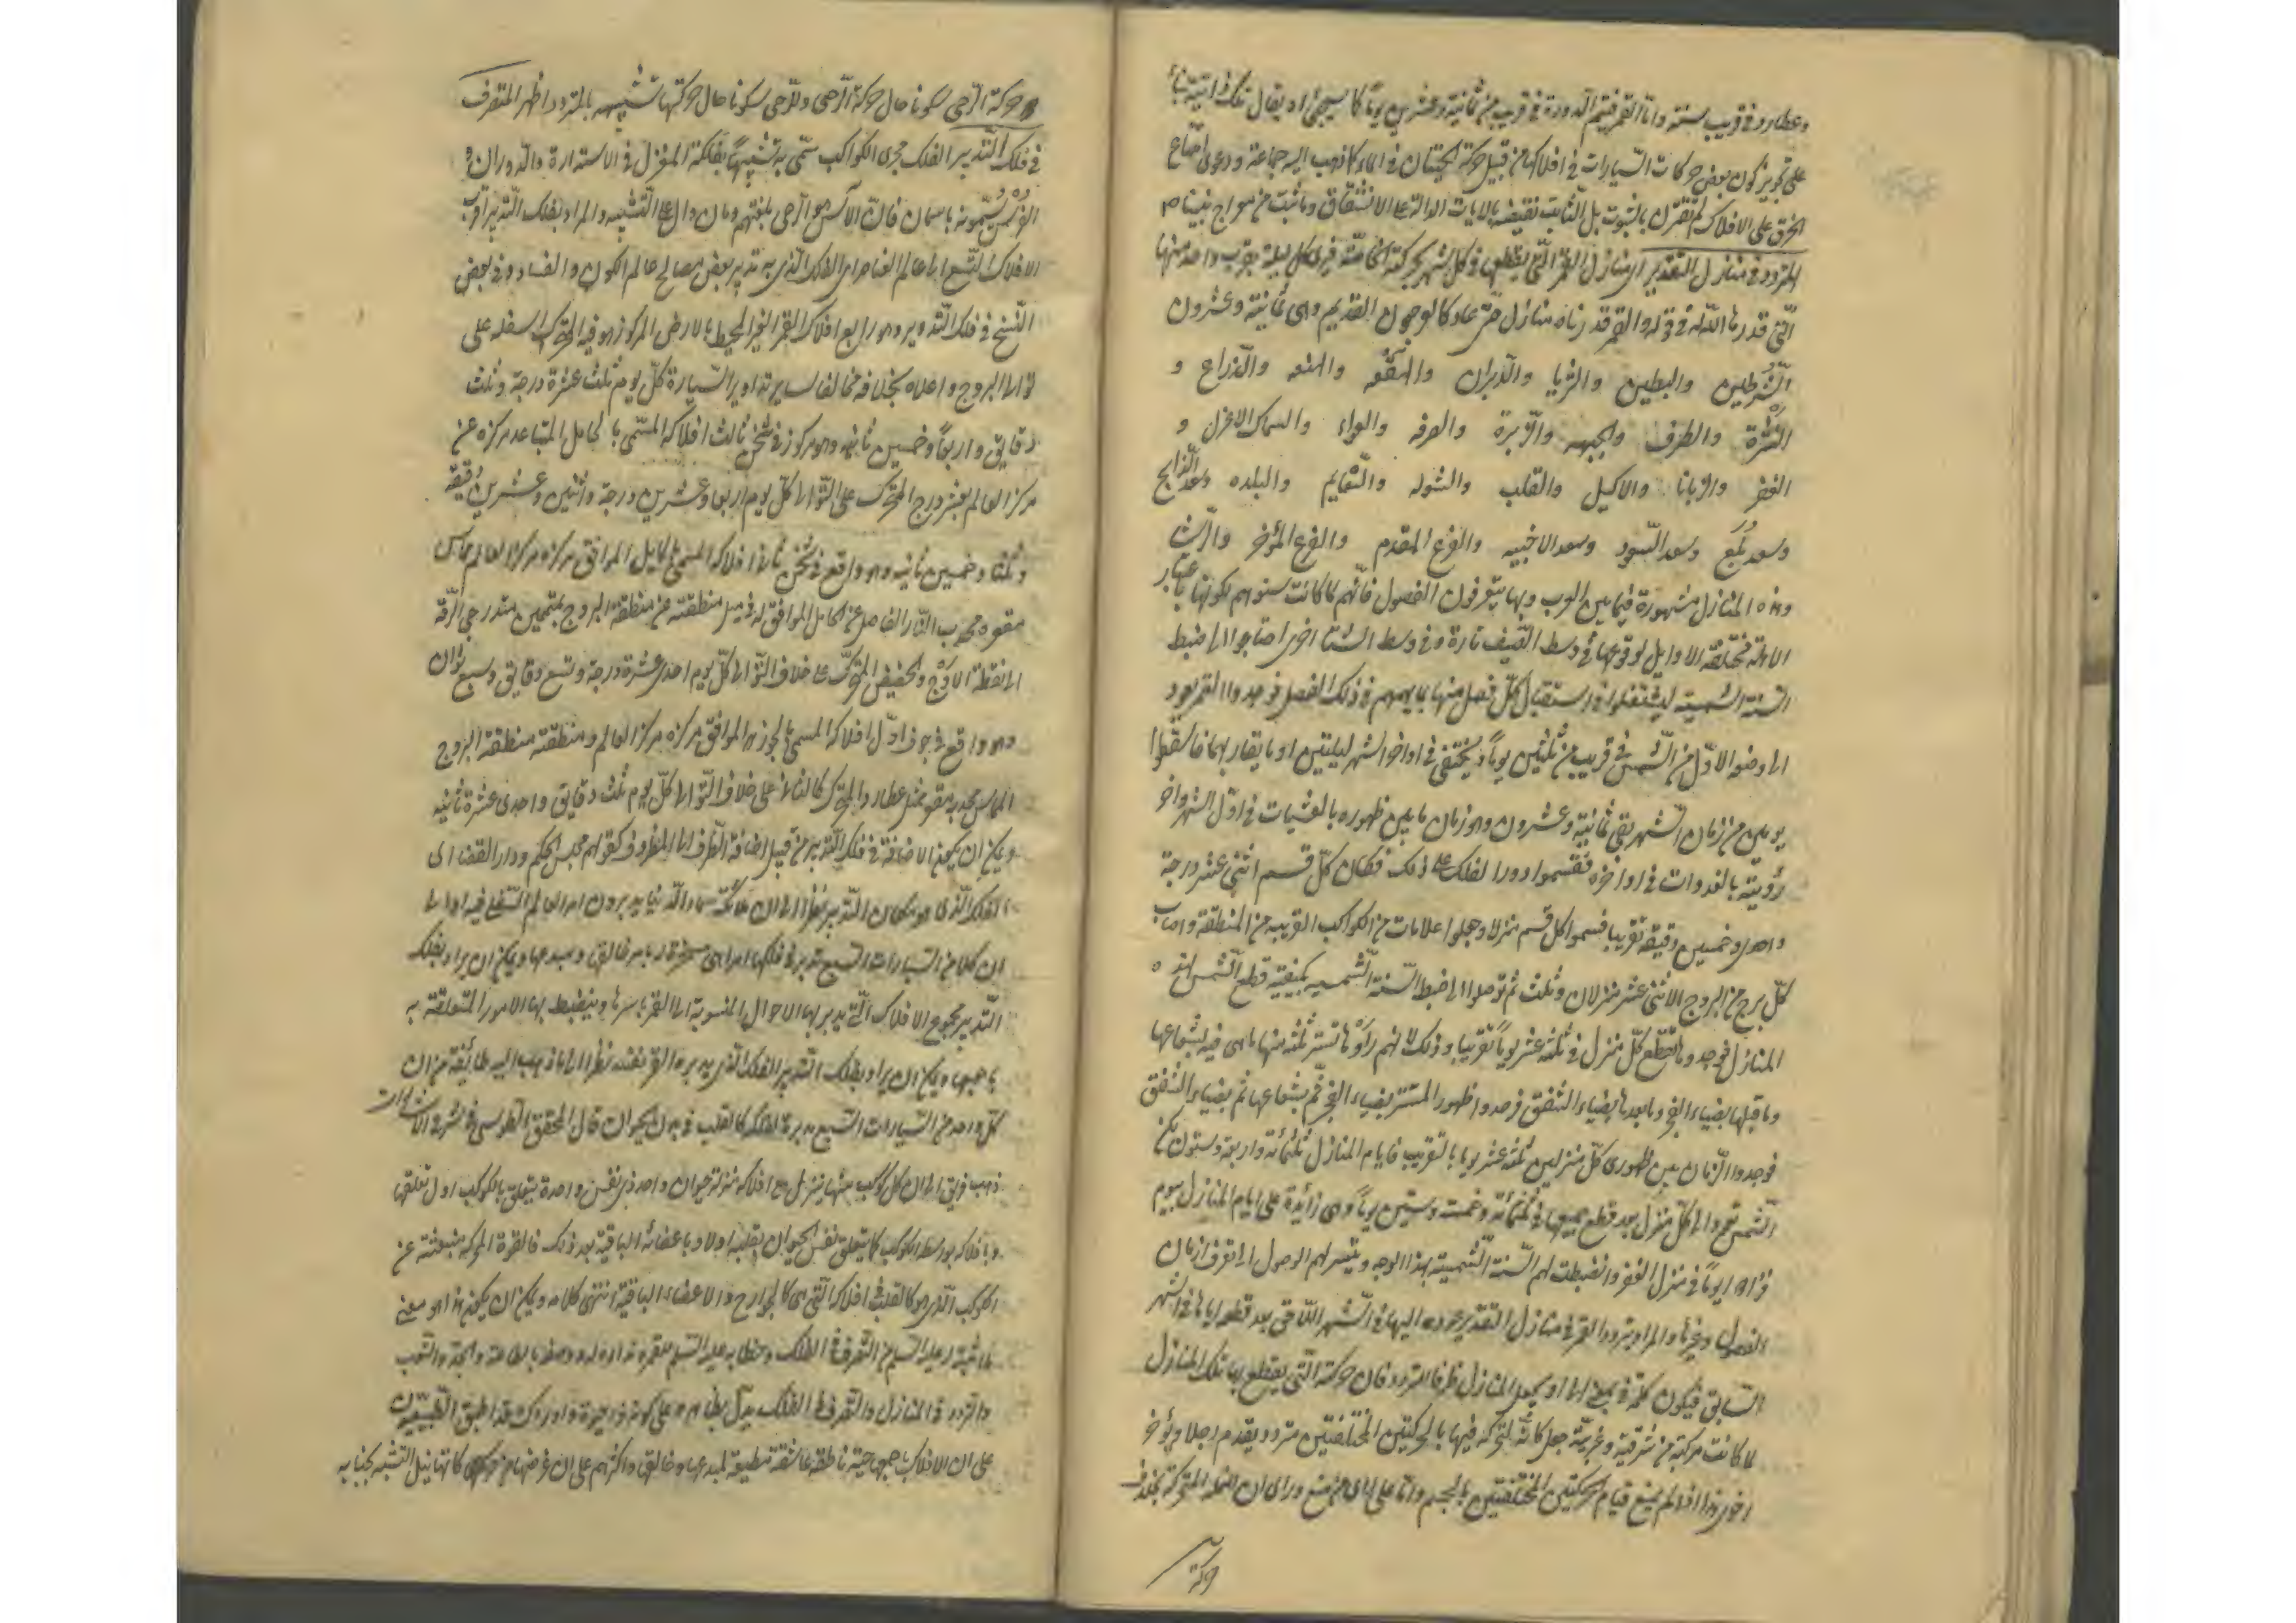 وعطارد في قريب سنة واما القمر فيتم الدورة في قريب من ثمانية وعشرين يوماً كما سيجئ او يقال تلك
على تجويز كون بعض حركات السيارات في افلاكها من قبيل حركة الحيتان في الماء كما ذهب اليه جماعة ودعوى امتناع
الخرق على الافلاك لم تقترن بالثبوت بل الثابت نقيضه بالايات الدالة على الانشقاق وما ثبت من معراج نبينا ص
المتردد في منازل التقدير اي منازل القمر التي يقطعها في كل شهر بحركته الخاصة فيرى كل ليلة بقرب واحد منها
التي قدرها الله في قوله والقمر قدرناه منازل حتى عاد كالعرجون القديم وهي ثمانية وعشرون
الشرطين والبطين والثريا والدبران والهقعه والهنعه والذراع و
النثرة والطرف والجبهه والزبرة والصرفه والعواء والسماك الاعزل و
الغفر والزبانا والاكليل والقلب والشوله والنعايم والبلده وسعد الذابح
وسعد بلع وسعد السعود وسعد الاخبيه والفرغ المقدم والفرغ المؤخر والرشا
وهذه المنازل مشهورة فيما بين العرب وبها يتعرفون الفصول فانهم لما كانت سنوهم لكونها باعتبار
الاهلة مختلفة الاوايل لوقوعها في وسط الصيف تارة وفي وسط الشتا اخرى احتاجوا الى ضبط
السنة الشمسية ليشتغلوا في استقبال كل فصل منها بما يهمهم في ذلك الفصل فوجدوا القمر يعود
الى وضعه الاول من الشمس في قريب من ثلثين يوماً ويختفي في اواخر الشهر ليلتين او ما يقاربهما فاسقطوا
يومين من زمان الشهر بقي ثمانية وعشرون وهو زمان ما بين ظهوره بالعشيات في اول الشهر واخر
رؤيته بالغدوات في اواخره فقسموا دور الفلك على ذلك فكان كل قسم اثنى عشر درجة
واحدى وخمسين دقيقة تقريبا فسموا كل قسم منزلا وجعلوا علامات من الكواكب القريبه من المنطقة واصاب
كل برج من البروج الاثنى عشر منزلان وثلث ثم توصلوا الى ضبط السنة الشمسيه بكيفية قطع الشمس لهذه
المنازل فوجدوها تقطع كل منزل في ثلثة عشر يوماً تقريبا وذلك لانهم رأوها تستر ثلثة منها ما هي فيه بشعاعها
وما قبلها بضياء الفجر وما بعدها بضياء الشفق فرصدوا ظهور المستتر بضياء الفجر ثم بشعاعها ثم بضياء الشفق
فوجدوا الزمان بين ظهوري كل منزلين ثلثة عشر يوما بالتقريب فايام المنازل ثلثمائة واربعة وستون لكن
الشمس تعود الى كل منزل بعد قطع جميعها في ثلثمائة وخمسة وستين يوماً وهي زائدة على ايام المنازل بيوم
فزادوا يوماً في منزل الغفر وانضبطت لهم السنة الشمسية بهذا الوجه وتيسر لهم الوصول الى تعرف ازمان
الفصول وغيرها والمراد بتردد القمر في منازل التقدير عوده اليها في الشهر اللاحق بعد قطعه اياها في الشهر
السابق فيكون كلمة في بمعنى الى او يجعل المنازل ظرفا للتردد فان حركته التي يقطع بها تلك المنازل
لما كانت مركبة من شرقية وغربية جعل كانه لتحركه فيها بالحركتين المختلفتين متردد يقدم رجلا ويؤخر
اخرى هذا اذا لم يمنع قيام الحركتين المختلفتين بالجسم واما على راي من منع وراى ان للنملة المتحركة بخلاف
حركة
حركة الرحى سكونا حال حركة الرحى وللرحى سكونا حال حركتها بالمتردد اظهر المتصرف
في فلك التدبير الفلك مجرى الكواكب سمي به تشبيهاً بفلكة المغزل في الاستدارة والدوران
الفرس يسمونه باسمان فان الآس هو الرحى بلغتهم ومان دال على التشبيه والمراد بفلك التدبير اقرب
الافلاك التسعة الى عالم العناصر اي الفلك الذي به تدبير بعض مصالح عالم الكون والفساد وفي بعض
النسخ في فلك التدوير وهو رابع افلاك القمر الغير المحيط بالارض المركوز هو فيه المتحرك اسفله على
توالي البروج واعلاه بخلافه مخالفا لساير تداوير السيارة كل يوم ثلث عشرة درجة وثلث
دقايق واربعاً وخمسين ثانيه وهو مركوز في ثخن ثالث افلاكه المسمى بالحامل المتباعد مركزه عن
مركز العالم بعشر درج المتحرك على التوالي كل يوم اربعا وعشرين درجة واثنين وعشرين دقيقة
وثلثا وخمسين ثانيه وهو واقع في ثخن ثاني افلاكه المسمى بالمايل الموافق مركزه مركز العالم المماس
مقعره محدب النار الفاصل عن الحامل الموافق له في ميل منطقته عن منطقة البروج بمتممين متدرجي الرقة
الى نقطة الاوج والحضيض المتحرك على خلاف التوالي كل يوم احدى عشرة درجة وتسع دقايق وسبع ثوان
وهو واقع في جوف اول افلاكه المسمى بالجوزهر الموافق مركزه مركز العالم ومنطقته منطقة البروج
المماس محدبه مقعر ممثل عطارد المتحرك كالثاني على خلاف التوالي كل يوم ثلث دقايق واحدى عشرة ثانيه
ويمكن ان يكون الاضافة في فلك التدبير من قبيل اضافة الظرف الى المظروف كقولهم مجلس الحكم ودار القضا اي
الفلك الذي هو مكان التدبير نظرا الى ان ملائكة سماء الدنيا يدبرون امر العالم السفلي فيه او الى
ان كلا من السيارات السبع تدبر في فلكها امرا هي مسخرة له بامر خالقها ومبدعها ويمكن ان يراد بفلك
التدبير مجموع الافلاك التي يدبر بها الاحوال المنسوبة الى القمر باسرها وينضبط بها الامور المتعلقة به
باجمعها ويمكن ان يراد بفلك التدبير الفلك الذي يدبره القمر نفسه نظرا الى ما ذهب اليه طائفة من ان
كل واحد من السيارات السبع مدبرة لفلكها كالقلب في بدن الحيوان قال المحقق الطوسي في شرح الاشارات
ذهب فريق الى ان كل كوكب منها ينزل مع افلاكه منزلة حيوان واحد ذي نفس واحدة يتعلق بالكوكب اول تعلقها
وبافلاكه بوساطة الكوكب كما يتعلق نفس الحيوان بقلبه اولا وباعضائه الباقية بعد ذلك فالقوة المحركة منبعثة عن
الكوكب الذي هو كالقلب في افلاكه التي هي كالجوارح والاعضاء الباقية انتهى كلامه ويمكن ان يكون هذا هو معنى
ما اثبته له عليه السلم من التصرف في الفلك وخطابه عليه السلم للقمر ونداؤه له ووصفه بالطاعة والجد والتعب
والتردد في المنازل والتصرف في الفلك يدل بظاهره على كونه ذا حيوة وادراك وقد اطبق الطبيعيون
على ان الافلاك باجمعها حية ناطقة عاشقة مطيعة لمبدعها وخالقها واكثرهم على ان غرضها من حركاتها نيل التشبه بجنابه